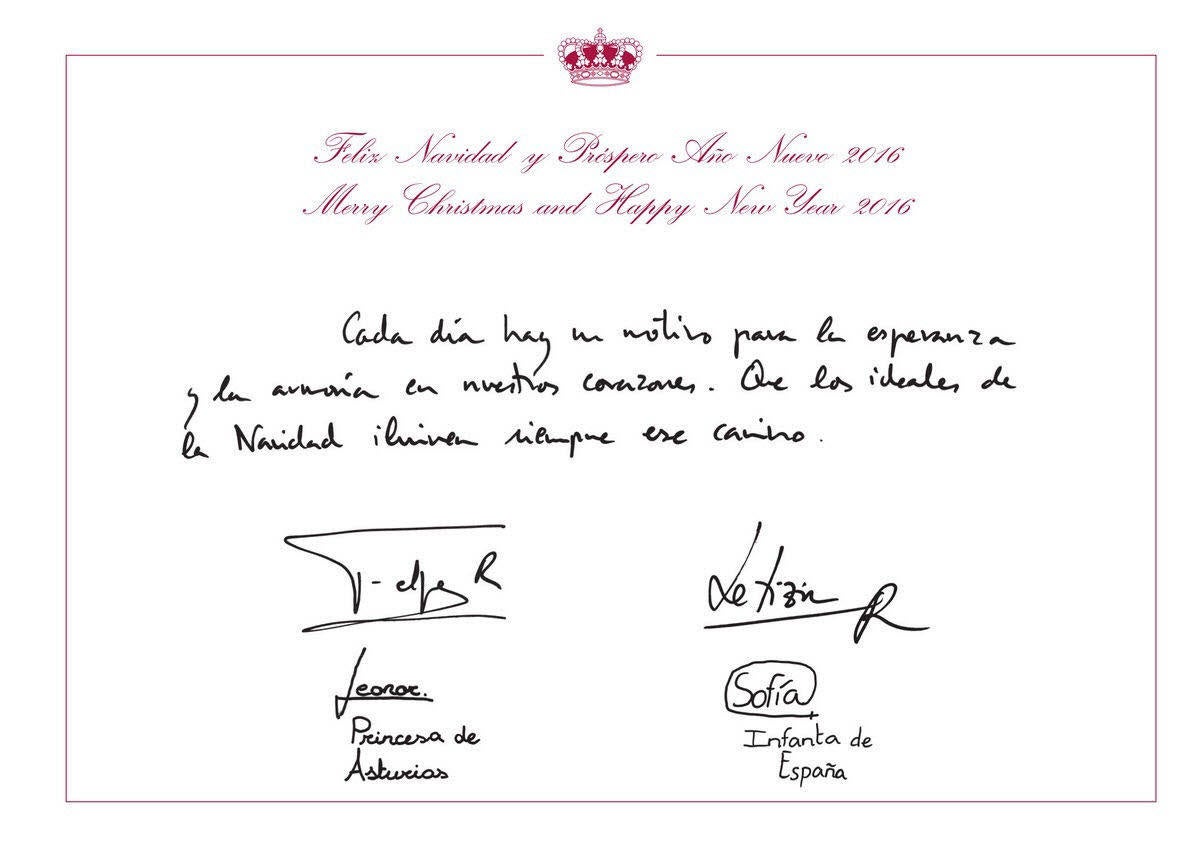 Feliz Navidad y Próspero Año Nuevo 2016
Merry Christmas and Happy New Year 2016
Cada día hay un motivo para la esperanza
y la armonía en nuestros corazones. Que los ideales de
la Navidad iluminen siempre ese camino.
Felipe R
Letizia R
Leonor.
Princesa de
Asturias
Sofía
Infanta de
España